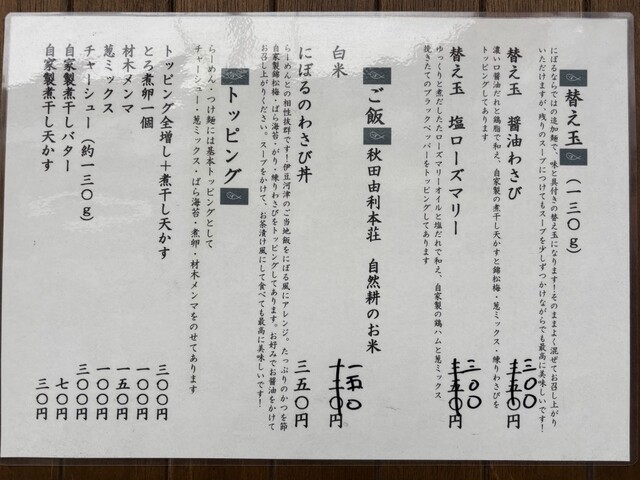 替え玉（一三〇ｇ）
にぼるならではの追加麺で、味と具付きの替え玉になります！そのままよく混ぜてお召し上がり
いただけますが、残りのスープにつけてもスープを少しずつかけながらでも最高に美味しいです！
替え玉 醤油わさび 三〇〇円
濃い口醤油だれと鶏脂で和え、自家製の煮干し天かすと錦松梅・葱ミックス・練りわさびを
トッピングしてあります
替え玉 塩ローズマリー 三〇〇円
ゆっくりと煮だしたローズマリーオイルと塩だれで和え、自家製の鶏ハムと葱ミックス
挽きたてのブラックペッパーをトッピングしてあります
ご飯 秋田由利本荘 自然耕のお米
白米 一五〇円
にぼるのわさび丼 三五〇円
らーめんとの相性抜群です！伊豆河津のご当地飯をにぼる風にアレンジ。たっぷりのかつを節
自家製錦松梅・ばら海苔・がり・練りわさびをトッピングしてあります。お好みでお醤油をかけて
お召し上がりください。スープをかけて、お茶漬け風にして食べても最高に美味しいです！
トッピング
らーめん・つけ麺には基本トッピングとして
チャーシュー・葱ミックス・ばら海苔・煮卵・材木メンマをのせてあります
トッピング全増し＋煮干し天かす 三〇〇円
とろ煮卵一個 一〇〇円
材木メンマ 一五〇円
葱ミックス 一〇〇円
チャーシュー（約一三〇ｇ） 三〇〇円
自家製煮干しバター 七〇円
自家製煮干し天かす 三〇円